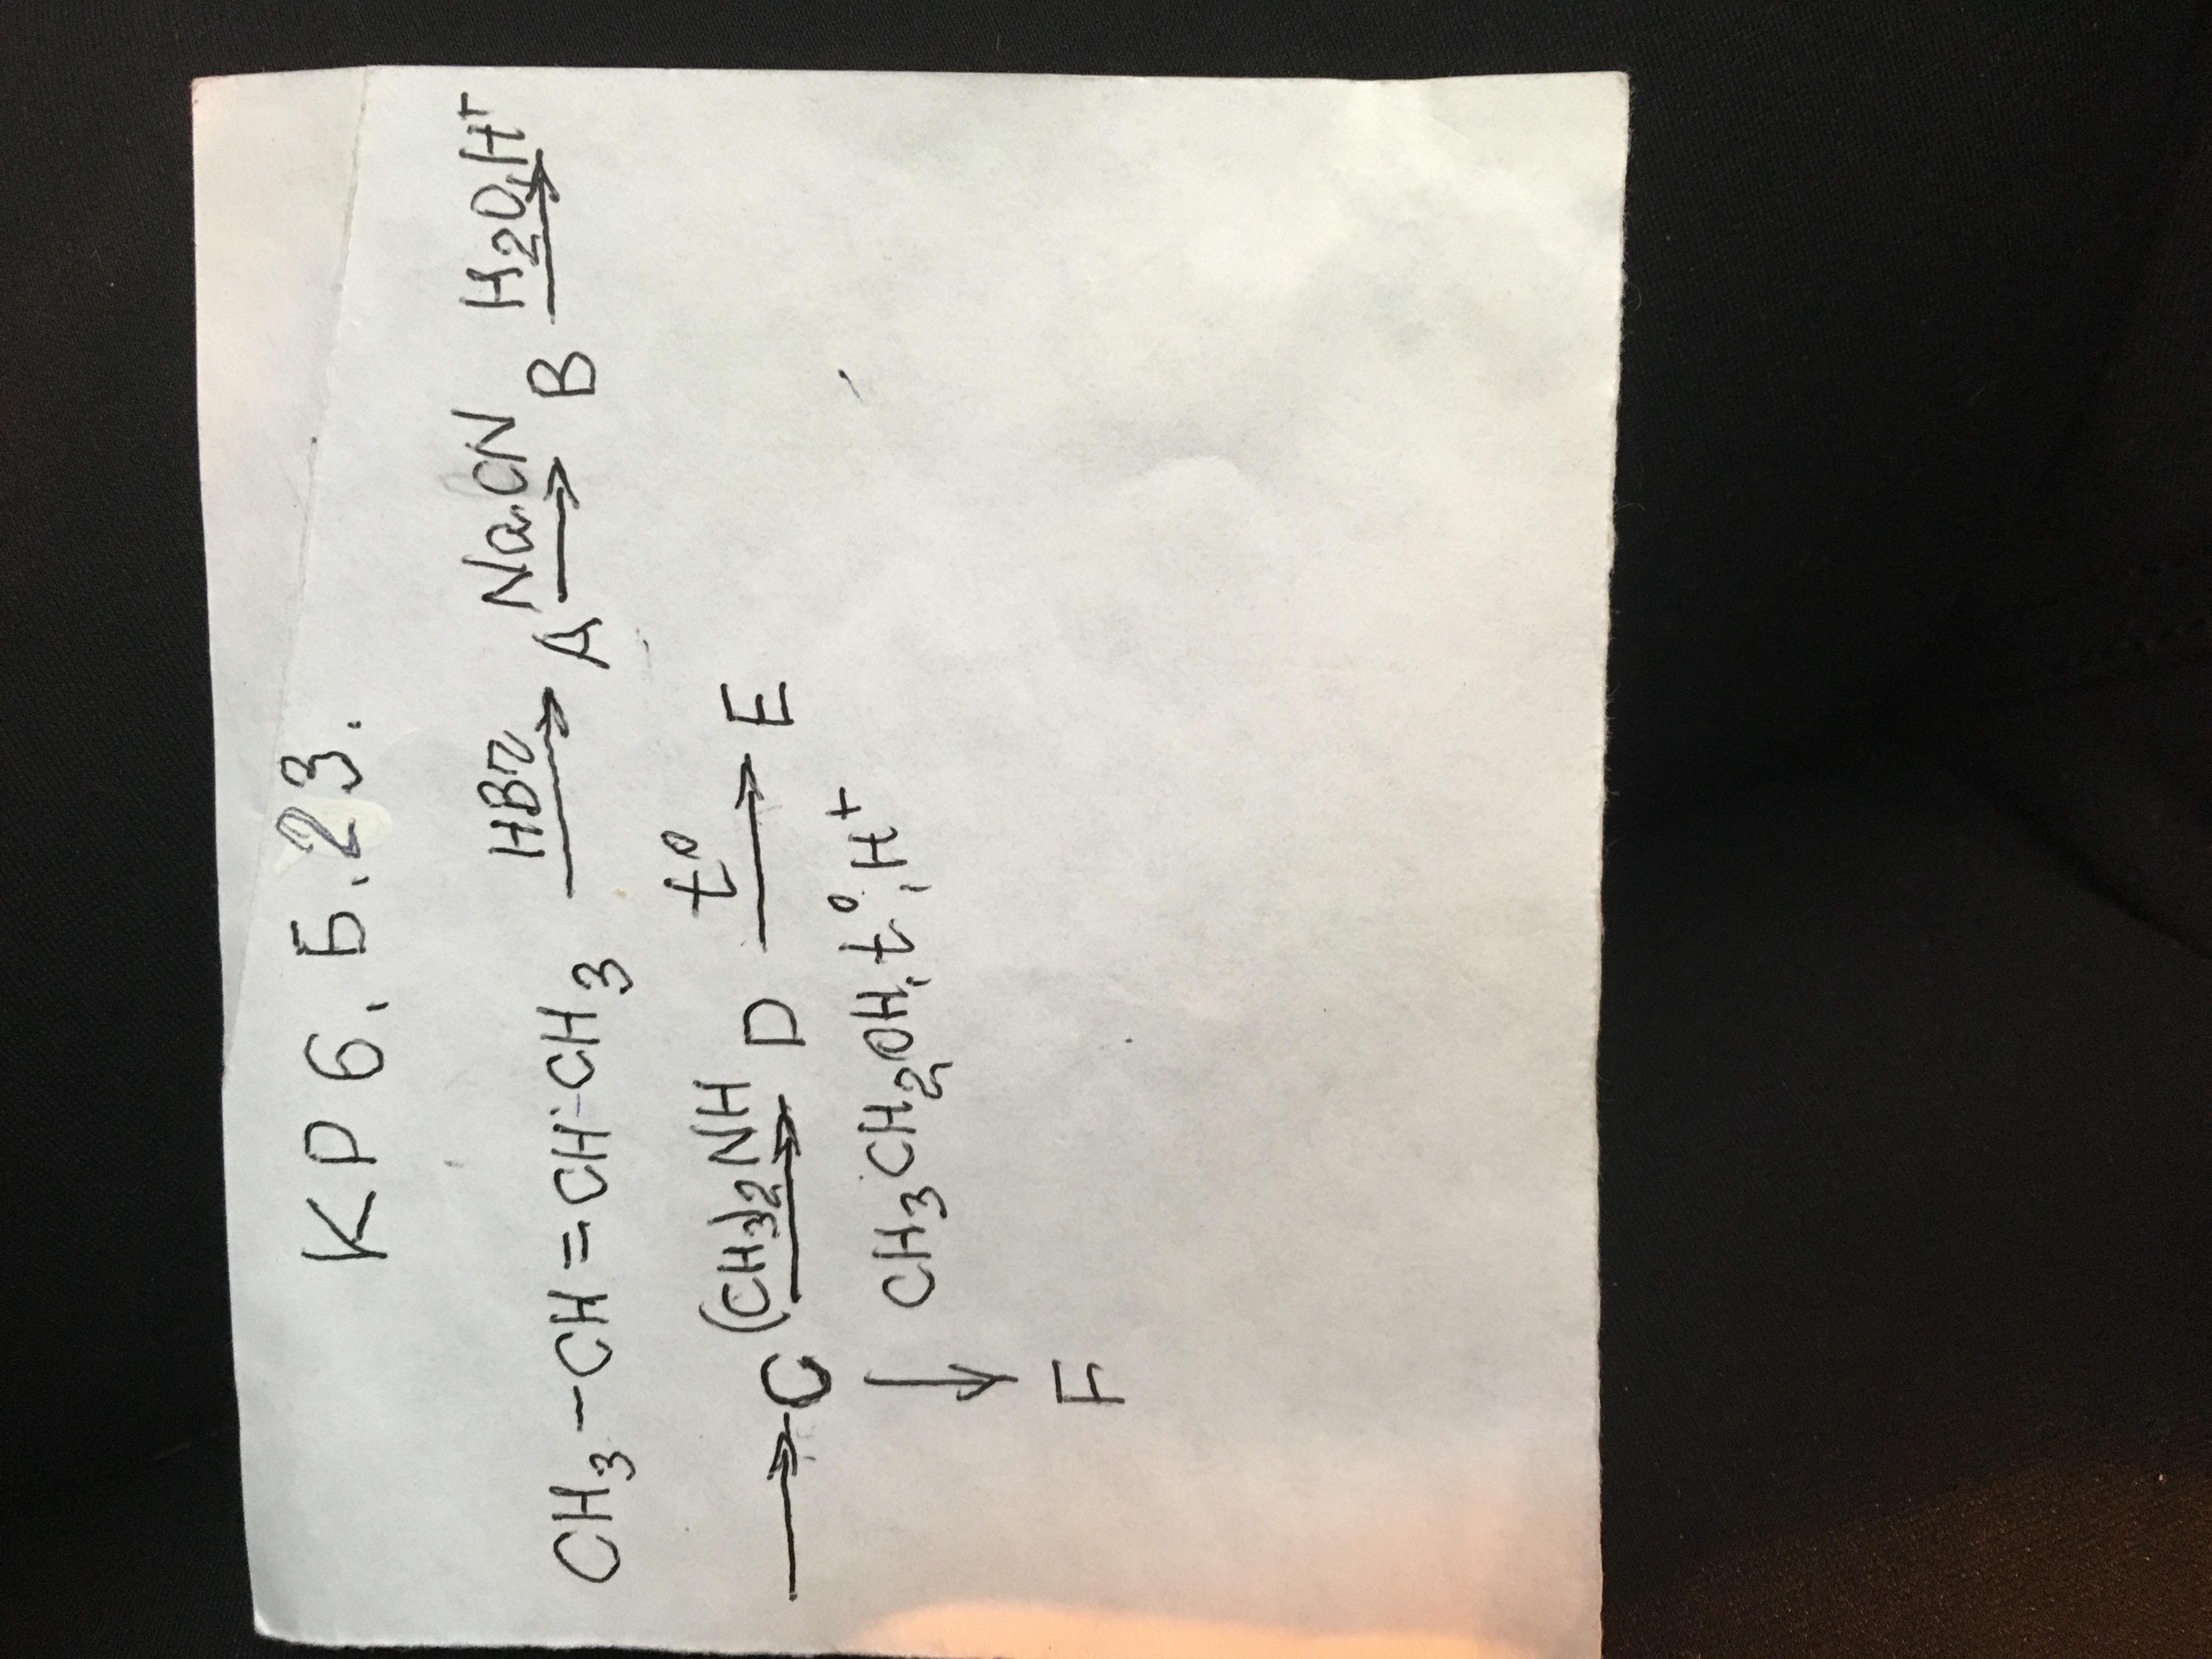 КР 6. Б. 23.
CH₃-CH=CH-CH₃ HBr → A NaCN → B H₂O, H⁺ →
→ C (CH₃)₂NH → D t° → E
↓ CH₃CH₂OH, t°, H⁺
F